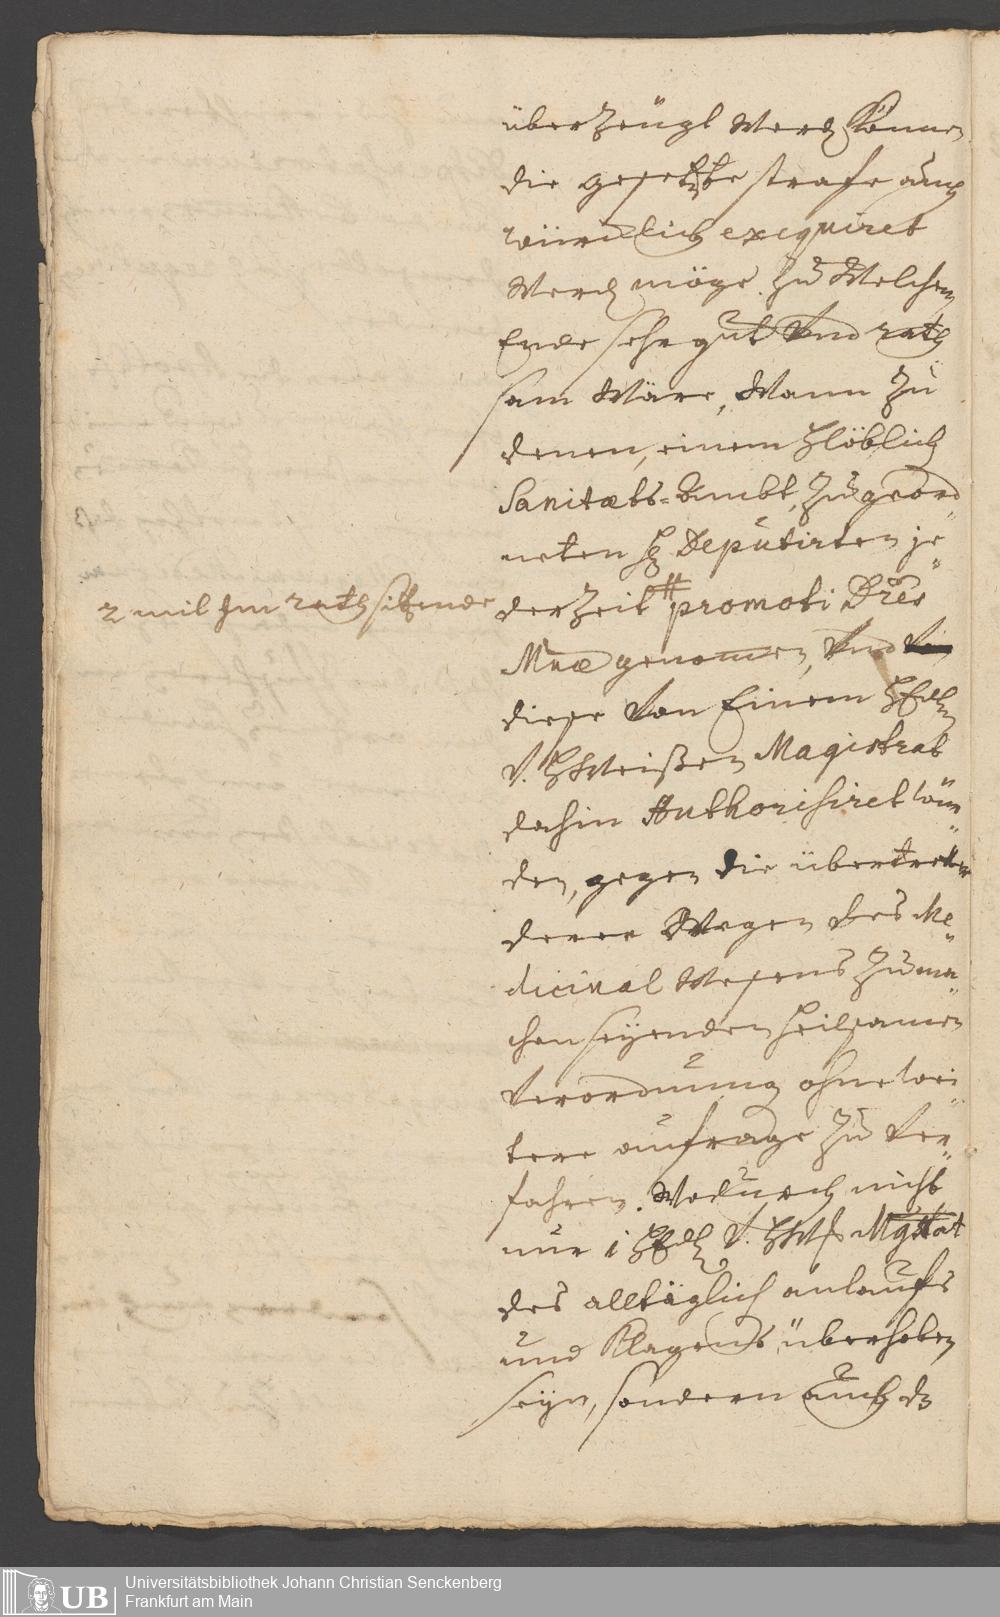 überzeügt werd können
die gesetzte strafe auch
würcklich exequiret
werd möge. Zu welchem
Ende sehr gut und rath
sam wäre, wann zu
denen, einem hlöblich
Sanitæts-Ambt, zugeord
neten H Deputirten je
derzeit # promoti Dres
2 mit im rath sitzende
Mnæ genomen, und
diese von Einem HEdl
v. HWeißen Magistrat
dahin Authorisiret wür
den, gegen die übertretter
derer Wegen des Me
dicinal Wesens zu ma
chen seyenden heilsamen
Verordnung ohne wei
tere anfrage zu ver
fahren. Wodurch nicht
nur i HEdl v. HWß Mgstrat
des alltäglich anlaufs
und Klagens überhoben
seyn, sondern auch dz
UB
Universitätsbibliothek Johann Christian Senckenberg
Frankfurt am Main